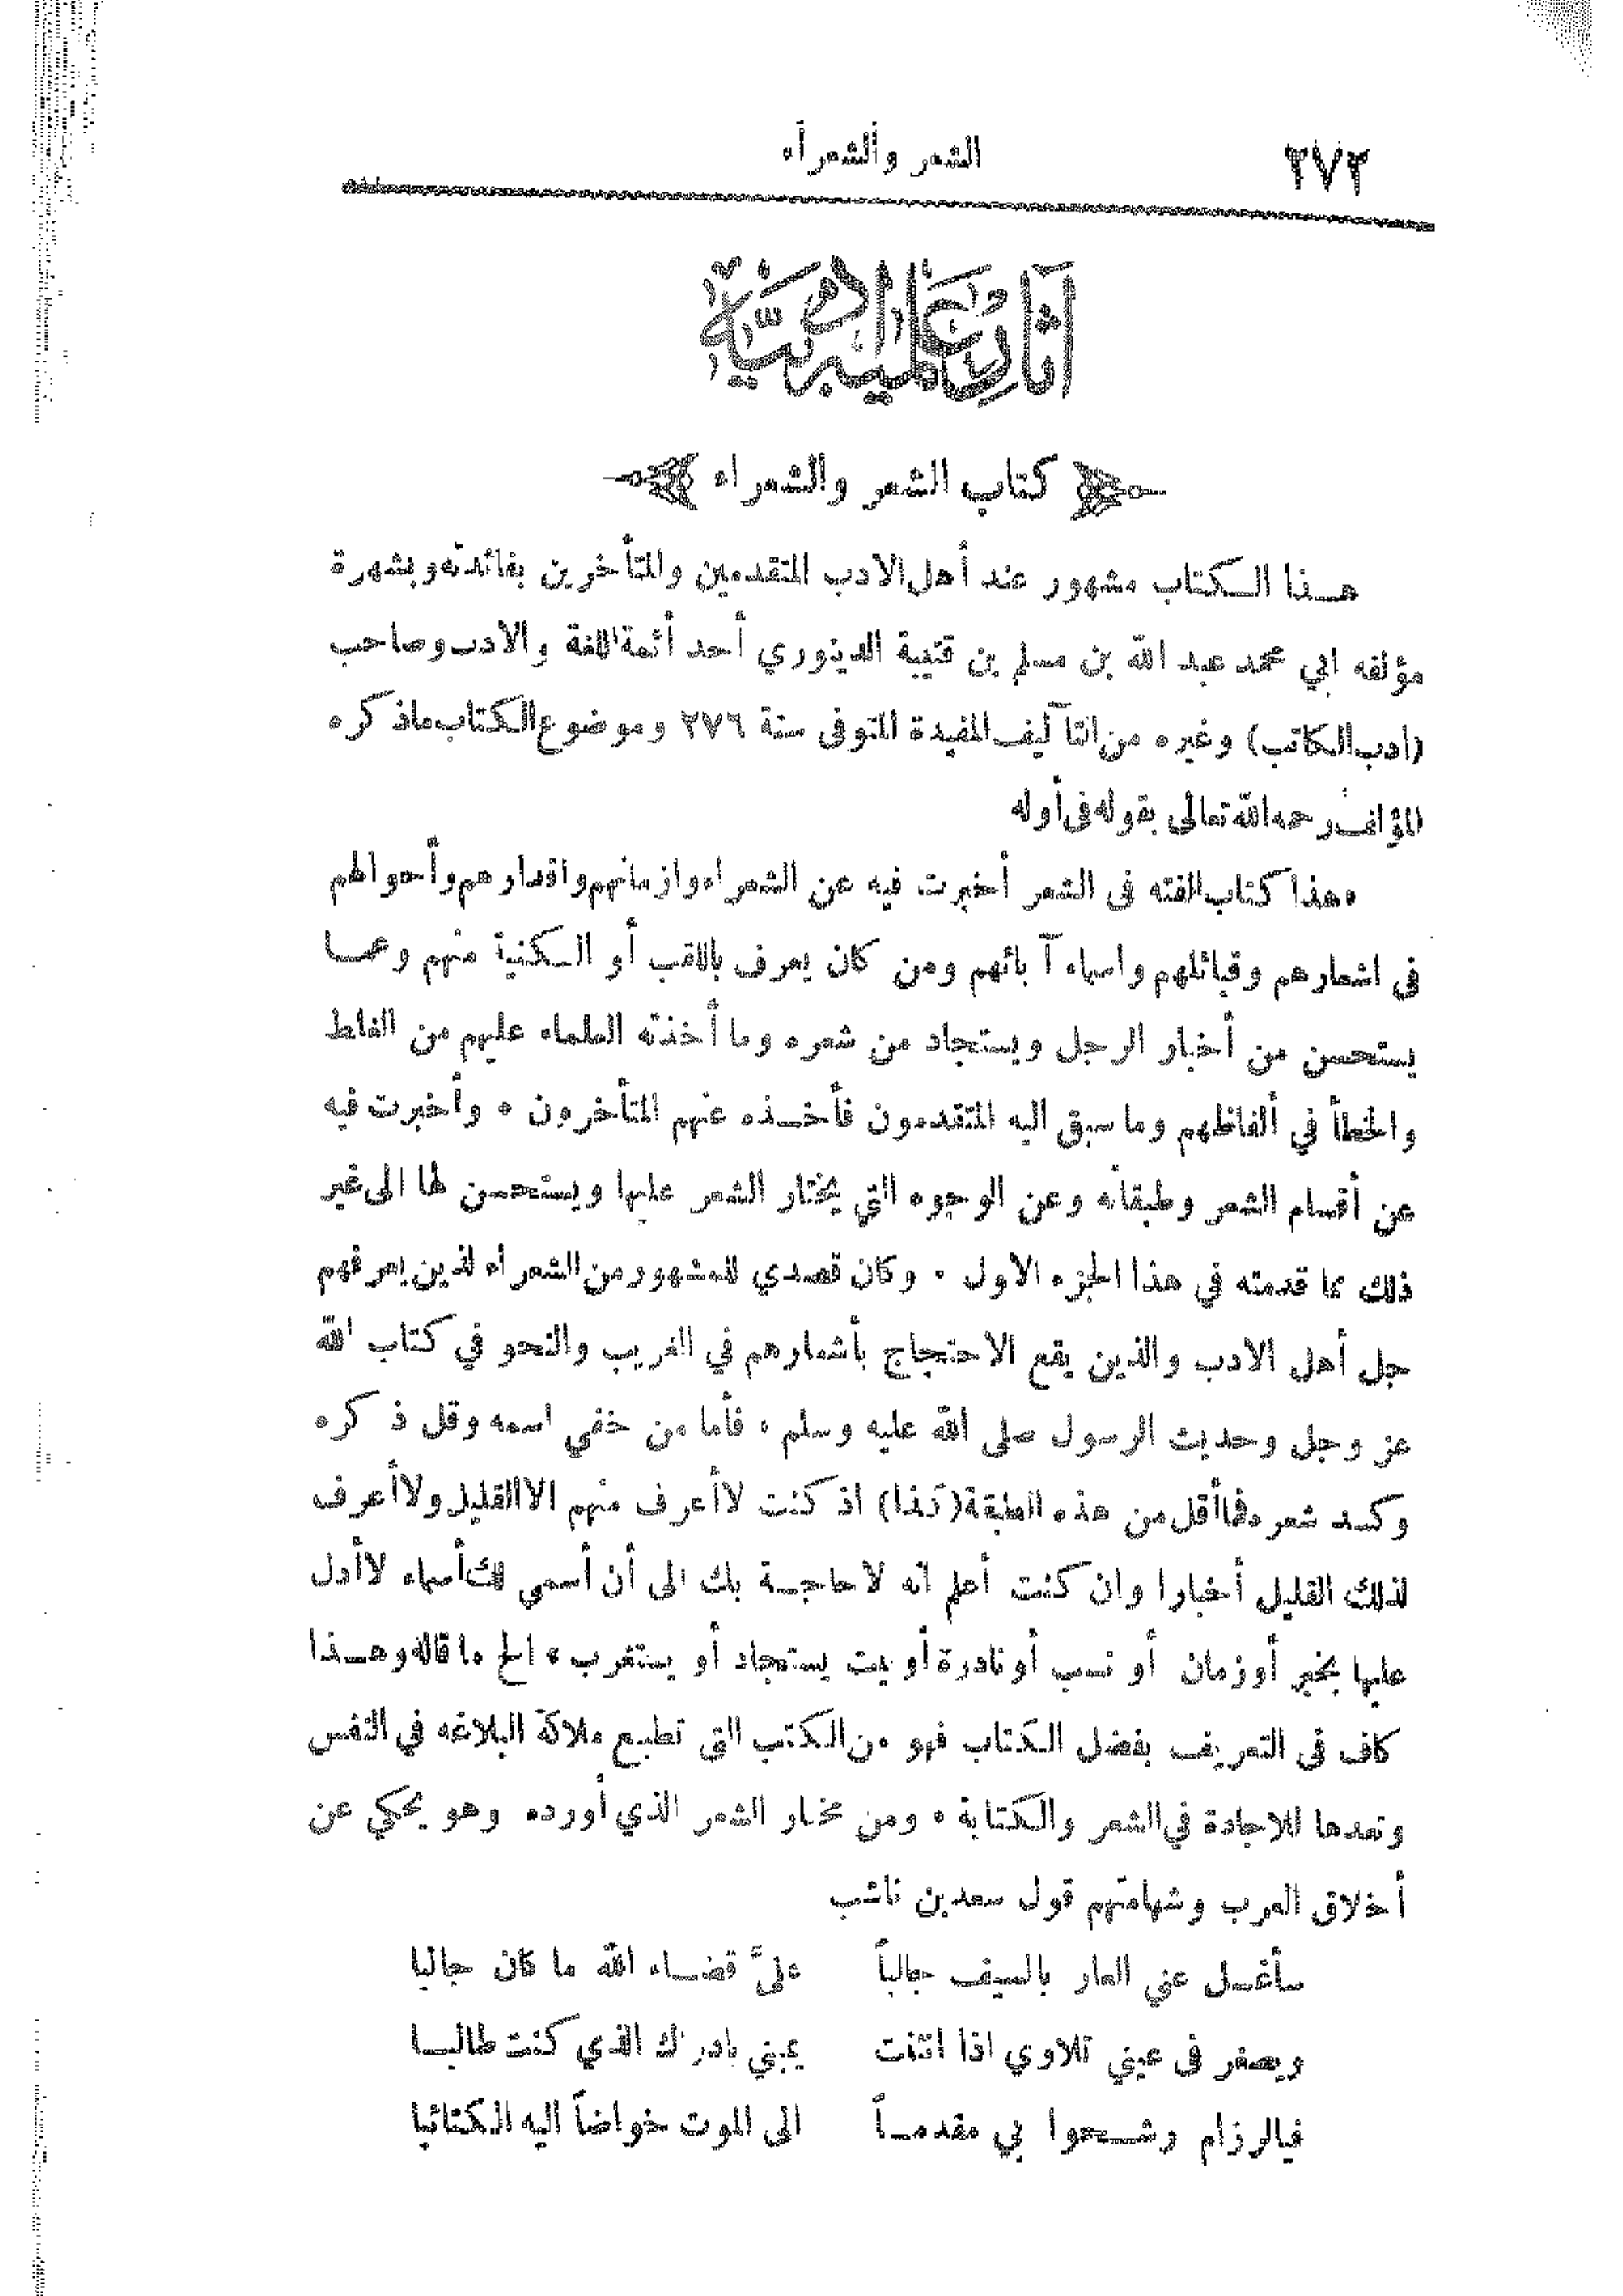 ٢٧٢
الشعر والشعرآء
آثار علمية أدبية
كتاب الشعر والشعراء
هـذا الـكتاب مشهور عند أهل الادب المتقدمين والمتأخرين بفائدته وبشهرة
مؤلفه ابي محمد عبد الله بن مسلم بن قتيبة الدينوري أحد أئمة اللغة والادب وصاحب
(ادب الكاتب) وغيره من التآليف المفيدة المتوفى سنة ٢٧٦ وموضوع الكتاب ماذكره
المؤلف رحمه الله تعالى بقوله في أوله
«هذا كتاب الفته في الشعر أخبرت فيه عن الشعراء وازمانهم واقدارهم وأحوالهم
في اشعارهم وقبائلهم واسماء آبائهم ومن كان يعرف باللقب أو الـكنية منهم وعمـا
يستحسن من أخبار الرجل ويستجاد من شعره وما أخذته العلماء عليهم من الغلط
والخطأ في ألفاظهم وما سبق اليه المتقدمون فأخـذه عنهم المتأخرون • وأخبرت فيه
عن أقسام الشعر وطبقاته وعن الوجوه التي يختار الشعر عليها ويستحسن لها الى غير
ذلك مما قدمته في هذا الجزء الاول • وكان قصدي للمشهور من الشعرآء لذين يعرفهم
جل أهل الادب والذين يقع الاحتجاج بأشعارهم في الغريب والنحو في كتاب الله
عز وجل وحديث الرسول صلى الله عليه وسلم ، فأما من خفي اسمه وقل ذكره
وكسد شعره فما أقل من هذه الطبقة (كذا) اذ كنت لا أعرف منهم الا القليل ولا أعرف
لذلك القليل أخبارا وان كنت أعلم انه لا حاجـة بك الى أن أسمي لك أسماء لا أدل
عليها بخبر أو زمان أو نسب أو نادرة أو بيت يستجاد أو يستغرب » الخ ما قاله وهـذا
كاف في التعريف بفضل الكتاب فهو من الكتب التي تطبع ملكة البلاغه في النفس
وتعدها للاجادة في الشعر والكتابة • ومن مختار الشعر الذي أورده وهو يحكي عن
أخلاق العرب وشهامتهم قول سعد بن ناشب
سأغسل عني العار بالسيف جالباً عليَّ قضـاء الله ما كان جالبا
ويصغر في عيني تلادي اذا انثنت يميني بادراك الذي كنت طالبـا
فيالرزام رشـحوا بي مقدمـاً الى الموت خواضاً اليه الـكتائبا